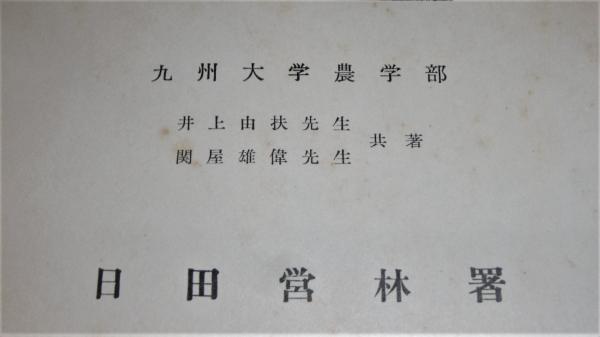 九州大学農学部
井上由扶先生
関屋雄偉先生
共著
日田営林署